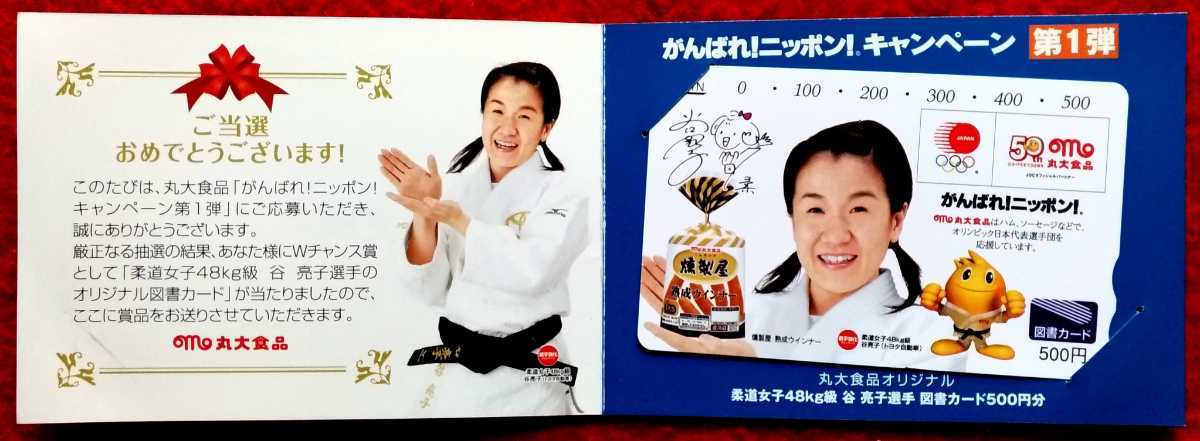 ご当選
おめでとうございます!
このたびは、丸大食品「がんばれ!ニッポン!
キャンペーン第1弾」にご応募いただき、
誠にありがとうございます。
厳正なる抽選の結果、あなた様にWチャンス賞
として「柔道女子48kg級 谷 亮子選手の
オリジナル図書カード」が当たりましたので、
ここに賞品をお送りさせていただきます。
丸大食品
柔道女子48kg級
谷亮子(トヨタ自動車)
がんばれ!ニッポン!® キャンペーン 第1弾
0・100・200・300・400・500
JAPAN
50th 丸大食品
JOCオフィシャルパートナー
がんばれ!ニッポン!®
丸大食品はハム、ソーセージなどで、
オリンピック日本代表選手団を
応援しています。
丸大食品
燻製屋
熟成ウインナー
燻製屋 熟成ウインナー
柔道女子48kg級
谷亮子(トヨタ自動車)
図書カード
500円
丸大食品オリジナル
柔道女子48kg級 谷 亮子選手 図書カード500円分